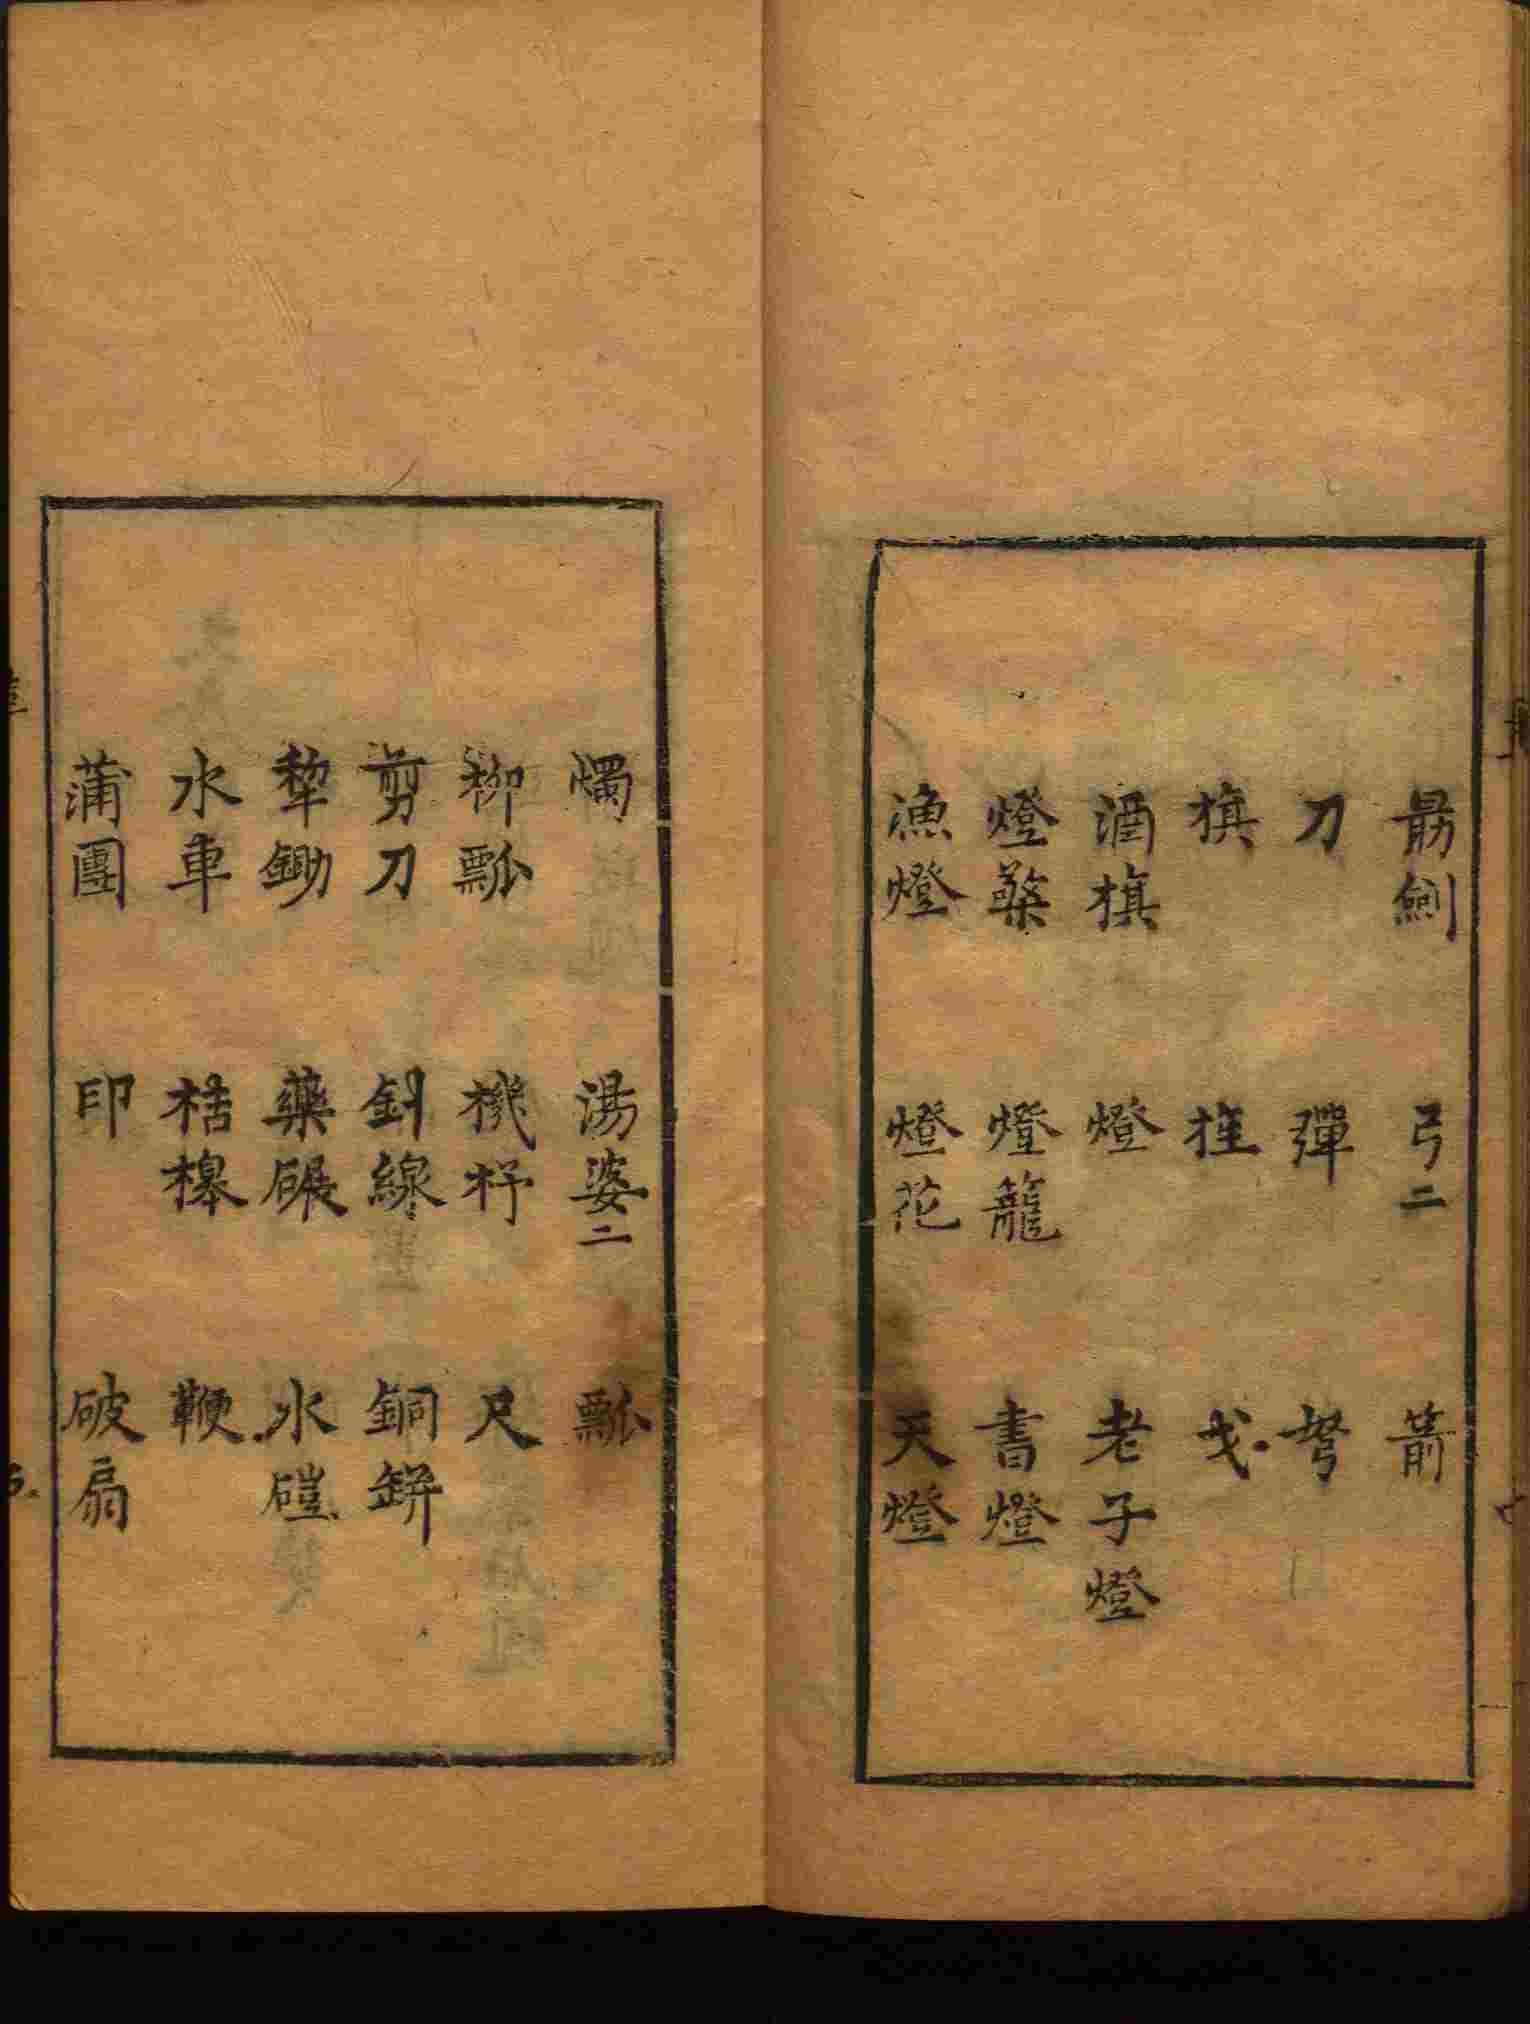 劍 弓二 箭
刀 彈 弩
旗 旌 戈
酒旗 燈 老子燈
燈蘂 燈籠 書燈
漁燈 燈花 天燈
燭 湯婆二 瓢
柳瓢 機杼 尺
剪刀 針線 銅缾
犂鋤 藥碾 水磑
水車 桔槹 鞭
蒲團 印 破扇